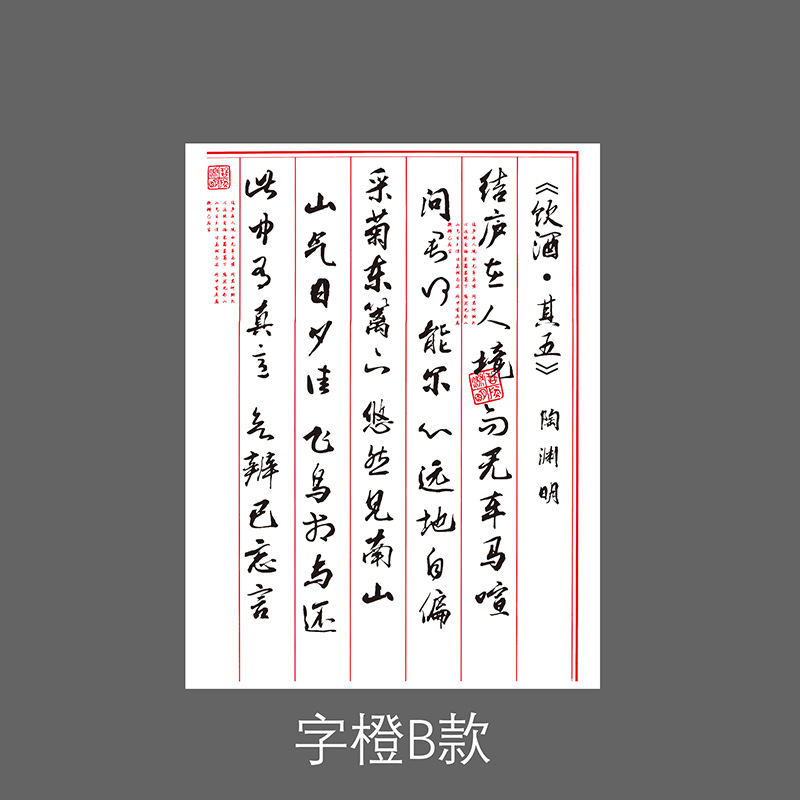 《饮酒·其五》 陶渊明
结庐在人境 而无车马喧
问君何能尔 心远地自偏
采菊东篱下 悠然见南山
山气日夕佳 飞鸟相与还
此中有真意 欲辨已忘言
字橙B款